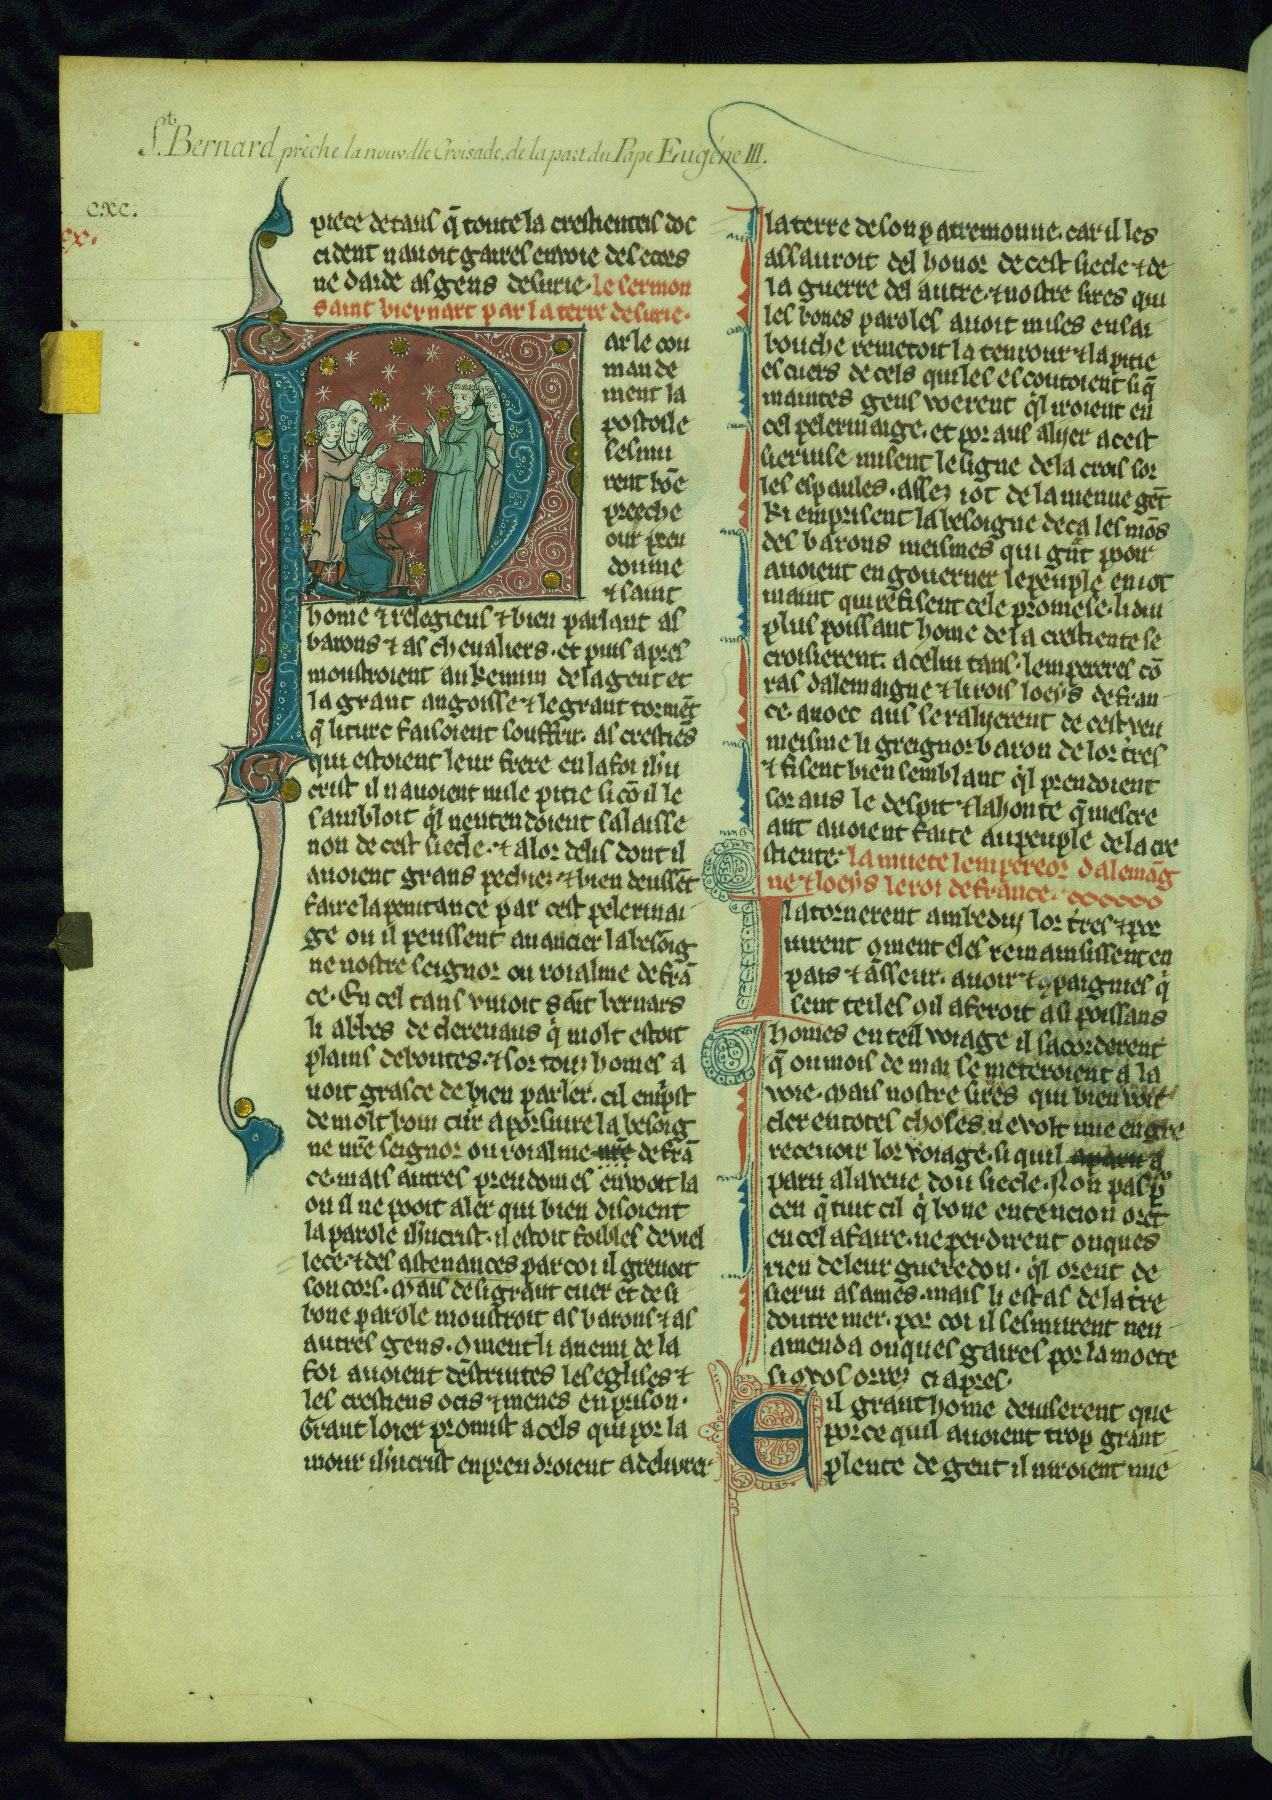 St Bernard prêche la nouvelle Croisade, de la part du Pape Eugéne III.
cxc.
piece detans q̃ toute la crestienteis doc
cident nauoit gaires enuoie de secors
ne daide as gens desurie. le sermon
saint biernart par la terre desurie.
arle con
mande
ment la
postoile
semi
rent bōe
preeche
our preu
doume
⁊ saint
home ⁊ relegieus ⁊ bien parlant as
barons ⁊ as cheualiers. et puis apres
moustroient au kemun de la gent et
la grant angoisse ⁊ le grant tormēt
q̃ li turc faisoient souffrir. as crestiēs
qui estoient leur frere en la foi ih'u
crist il nauoient nule pitie si cō il le
sambloit q̃l nentendoient sa laisse
non de cest siecle. ⁊ a lor delis dont il
auoient grans pechiez ⁊ bien deussēt
faire la penitance par cest pelerinai
ge ou il peussent auancier la besoig
ne nostre seignor ou roialme de frā
ce. En cel tans viuoit sait bernars
li abbes de clereuaus q̇ molt estoit
plains de bontes. ⁊ sor touz homes a
uoit grasce de bien parler. cil emp̃ist
de molt bom cuir a porsiure la besoig
ne nr̃e seignor ou roialme nr̃e de frā
ce. mais autres preudomes enuoit la
ou il ne pooit aler qui bien disoient
la parole ih'ucrist. il estoit foibles de viel
lece. ⁊ des astenances par coi il greuoit
son cors. Mais de si grant cuer et de si
bone parole moustroit as barons ⁊ as
autres gens. 9ment li anemi de la
foi auoient destruites les eglises ⁊
les crestiens ocis ⁊ menes en prison.
Grant loier promist a cels qui por la
mour ih'ucrist enprendroient a deliurer
la terre de son patremonne. car il les
assauroit del honor de cest siecle ⁊ de
la guerre del autre. ⁊ nostre sires qui
les bones paroles auoit mises en sa
bouche remetoit la tenrour ⁊ la pitie
es cuers de cels qui les escoutoient si q̃
maintes gens voerent q̃l iroient en
cel pelerinaige. et por aus alyer a cest
seruise misent le signe de la crois sor
les espaules. assez iot de la menue gēt
ki emprisent la besoigne de ca les mōs
des barons meismes qui grāt pooir
auoient en gouerner le peuple en iot
maint qui refisent cele promese. li dui
plus poissant home de la crestiente se
croisierent. a celui tans. lempereres cō
ras dalemaigne ⁊ li rois loeys de fran
ce. auoec aus se ralyerent de cest veu
meisme li greignor baron de lor tr̃es
⁊ fisent bien semblant q̃l prendoient
sor aus le despit ⁊ la honte q̃ mescre
ant auoient faite au peuple de la cre
stiente. la muete lempereor dalemāg
ne ⁊ loeys le roi de france.
Il atornerent ambeduj lor tr̃es ⁊ por
uirent 9ment eles remainsissent en
pais ⁊ asseur. auoir ⁊ 9paignies q̇
sent teiles 9 il aferoit a si poissans
homes en teil voiage il sacorderent
q̃ ou mois de mai se meteroient a la
voie. Mais nostre sires qui bien voit
cler en totes choses ne volt mie en gre
receuoir lor voiage. si quil aparu a
paru a la veue dou siecle. Non pas p̱
ceu q̃ tuit cil q̇ bone entencion orēt
en cel afaire. ne perdirent onques
rien de leur gueredon. q̃l orent de
serui as ames. mais li estas de la tr̃e
doutre mer. por coi il sesmurent nen
amenda onques gaires por la moete
si 9 vos orrez ci apres.
Cil grant home deuiserent que
por ce quil auoient trop grant
plente de gent il niroient mie